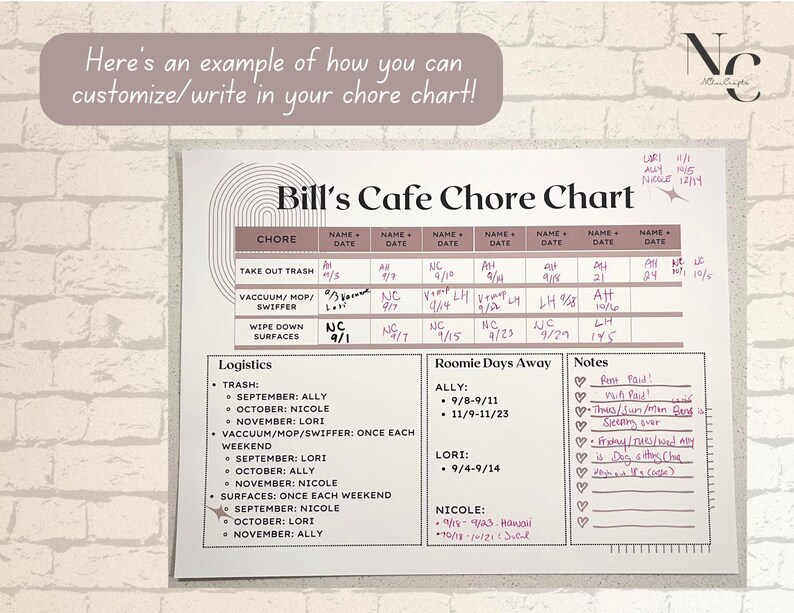 Here's an example of how you can
customize/write in your chore chart!
NC
LORI 11/1
ALLY 10/5
NICOLE 12/14
Bill's Cafe Chore Chart
CHORE NAME + DATE NAME + DATE NAME + DATE NAME + DATE NAME + DATE NAME + DATE NAME + DATE
TAKE OUT TRASH AH 9/3 AH 9/7 NC 9/10 AH 9/14 AH 9/18 AH 21 AH 24 NC 10/1 NC 10/5
VACCUUM/ MOP/ SWIFFER 9/3 Vacuum Lori NC 9/7 V+moP 9/14 LH V+mop LH LH 9/28 AH 10/6
WIPE DOWN SURFACES NC 9/1 NC 9/7 NC 9/15 NC 9/23 NC 9/29 LH
Logistics
TRASH:
SEPTEMBER: ALLY
OCTOBER: NICOLE
NOVEMBER: LORI
VACCUUM/MOP/SWIFFER: ONCE EACH
WEEKEND
SEPTEMBER: LORI
OCTOBER: ALLY
NOVEMBER: NICOLE
SURFACES: ONCE EACH WEEKEND
SEPTEMBER: NICOLE
OCTOBER: LORI
NOVEMBER: ALLY
Roomie Days Away
ALLY:
9/8-9/11
11/9-11/23
LORI:
9/4-9/14
NICOLE:
9/18-9/23: Hawaii
10/18-10/21: SoCal
Notes
Rent Paid!
Wifi Paid!
Thurs/Sun/Mon is
Sleeping over
Friday/Tues/Wed Ally
is Dog sitting